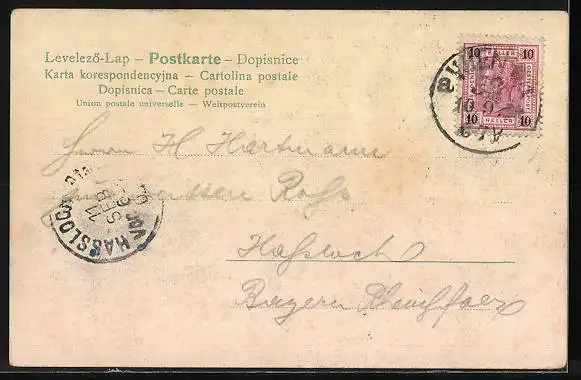 Levelező-Lap – Postkarte – Dopisnice
Karta korespondencyjna – Cartolina postale
Dopisnica – Carte postale
Union postale universelle – Weltpostverein
10 HELLER 10
10 HELLER 10
WIEN
Herrn H Hartmann
HASSLOCH
Hassloch
Bayern Rheinpfalz